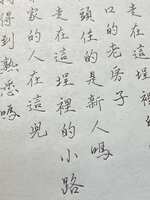 走在這埕裡的
口的老房子
頭住的是新人嗎
走在這埕裡的小路
家的人在這兒
得到熟悉嗎